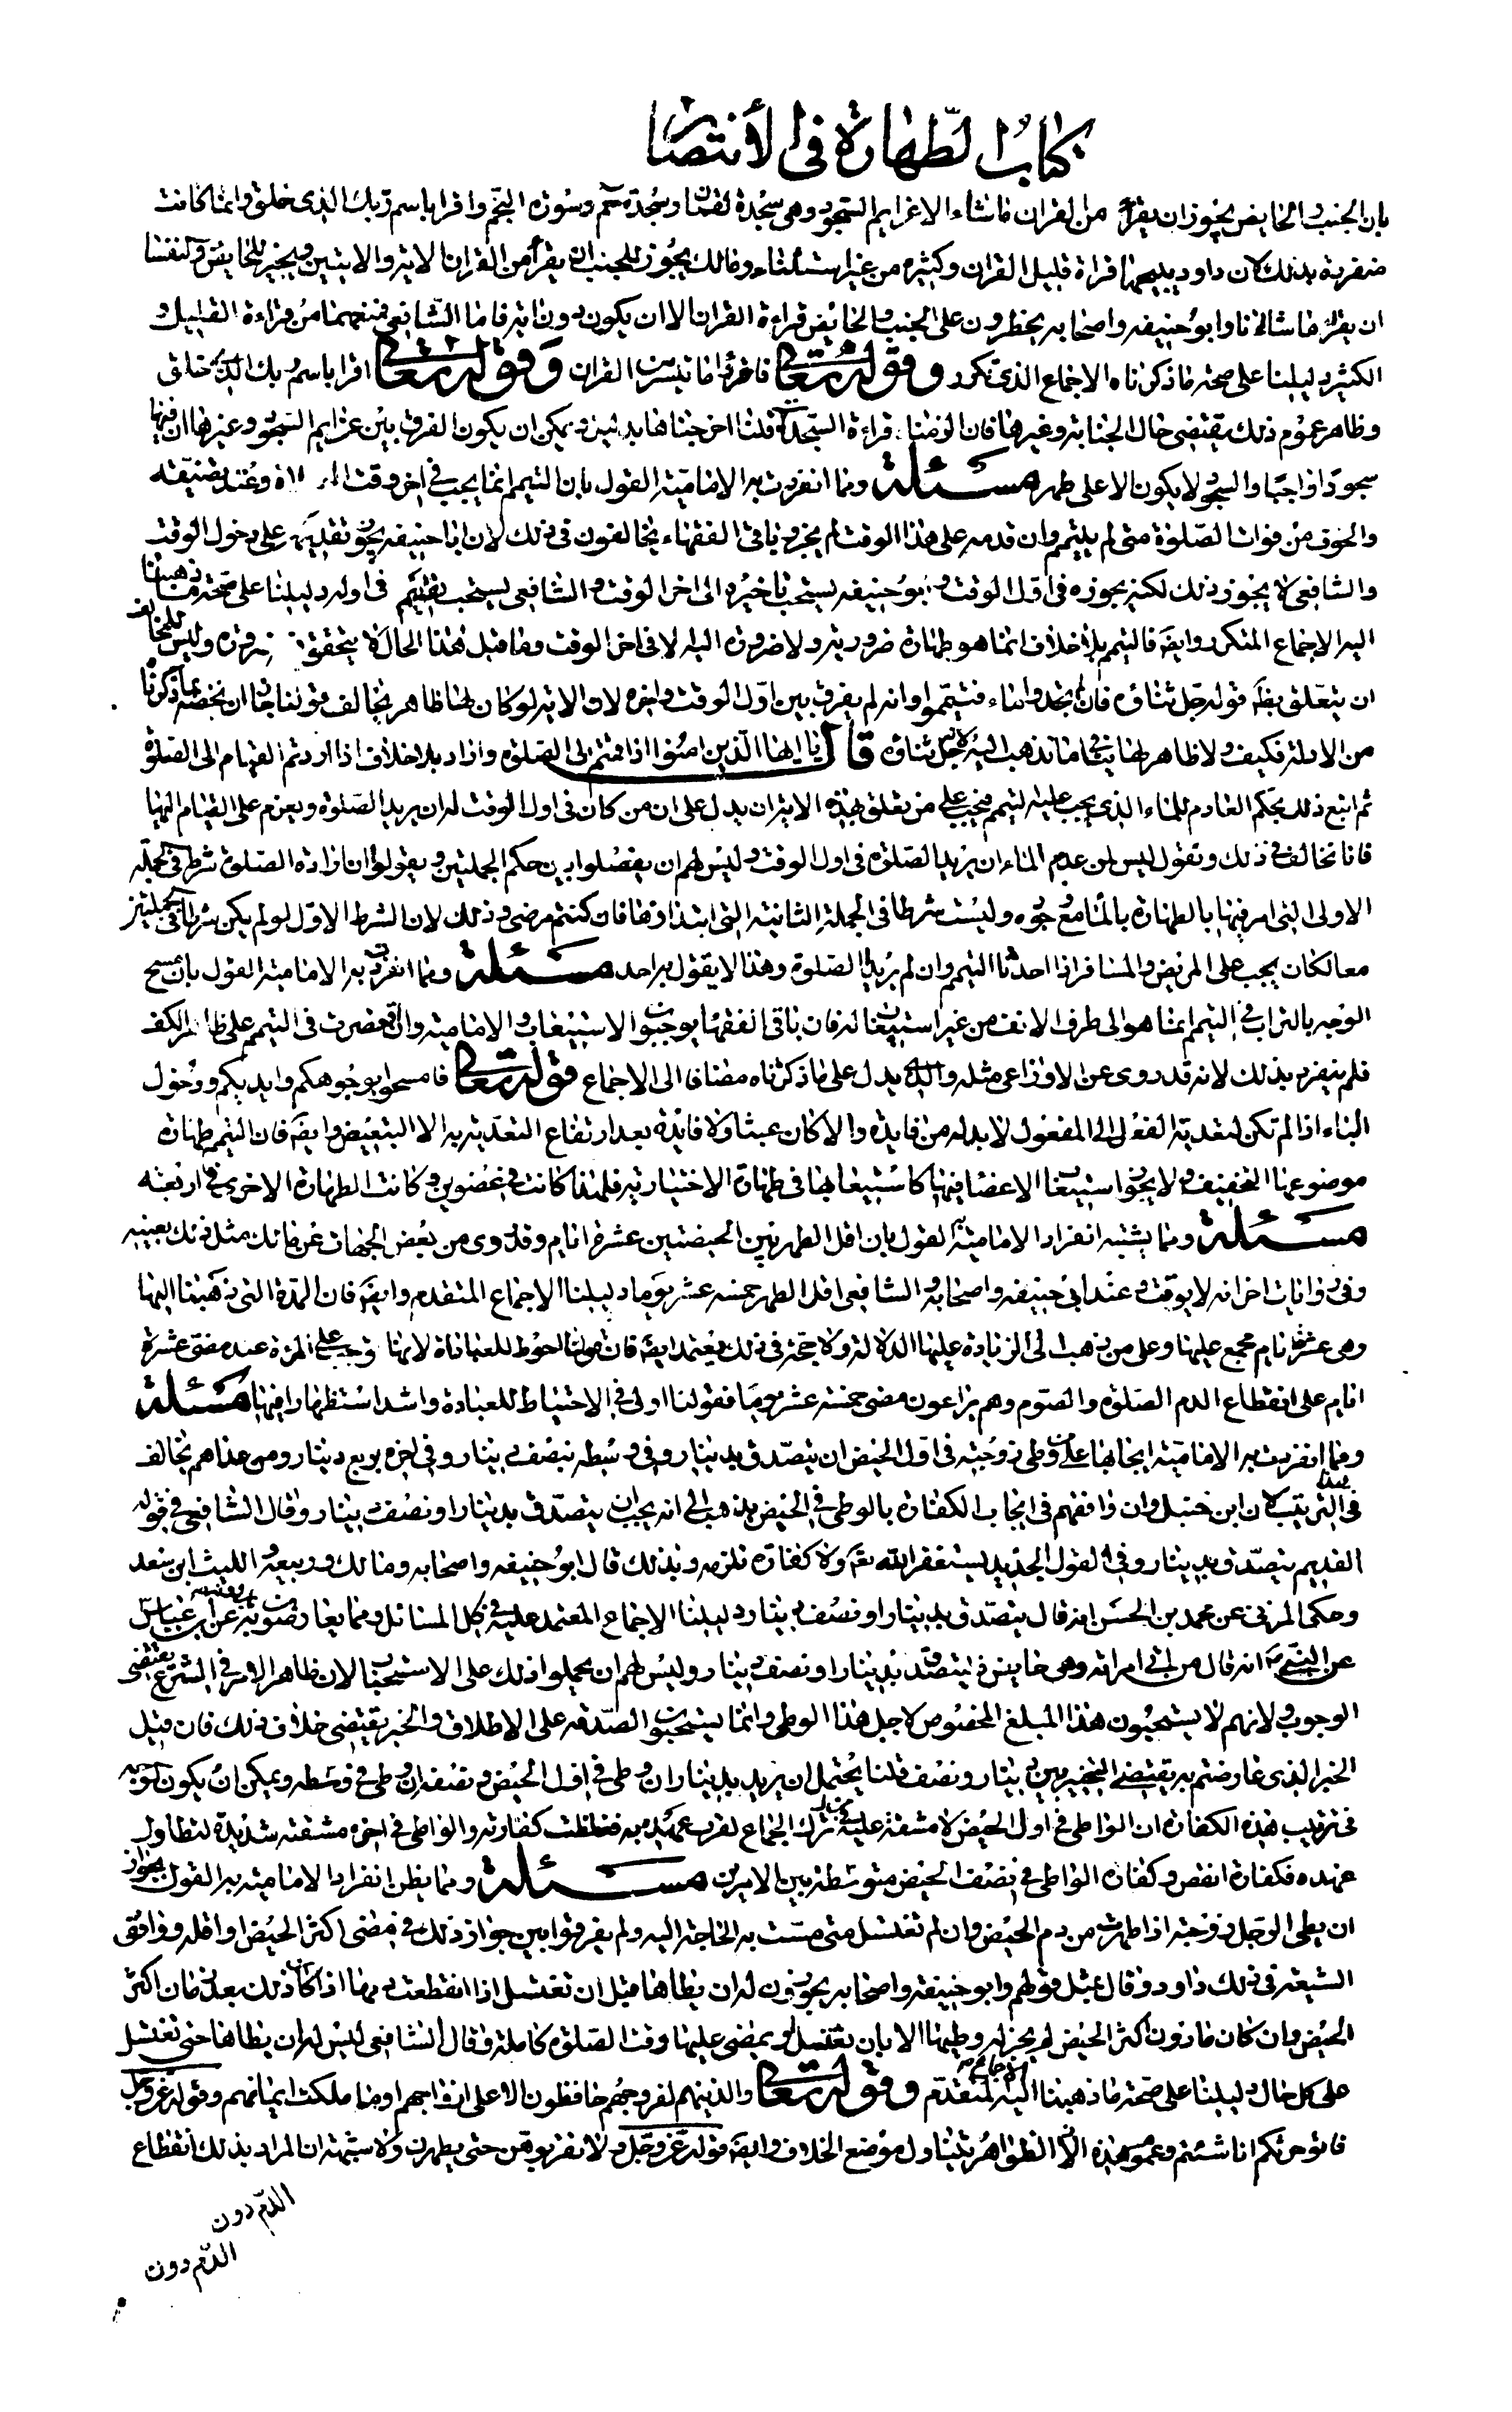 كتاب الطهارة في الأنتصار
بان الجنب والحايض يجوز ان يقرأ من القران ماشاء الا عزايم السجود وهى سجدة لقمان وسجدة حم وسورة النجم واقرا باسم ربك الذى خلق وانما كانت
منفردة بذلك لان داود يبيحهما قراة قليل القران وكثيره من غير استثناء ومالك يجوز للجنب ان يقرأ من القران الاية والايتين ويجيز للحايض والنفسا
ان يقرا ماشاءتا وابو حنيفه واصحابه يحظرون على الجنب والحائض قراءة القران الا ان يكون دون اية فاما الشافعى فمنعهما من قراءة القليل و
الكثير دليلنا على صحة ما ذكرناه الاجماع الذى تكرر وقوله تعالى فاقرؤا ما تيسر من القران وقوله تعالى اقرا باسم ربك الذى خلق
وظاهر عموم ذلك يقتضى حال الجنابة وغيرها فان الزمنا قراءة السجدة قلنا اخرجناها بدليل ويمكن ان يكون الفرق بين عزايم السجود وغيرها ان فيها
سجودا واجبا والسجود لا يكون الا على طهر مسئلة ومما انفردت به الامامية القول بان التيمم انما يجب فى اخر وقت وعند تضيقه
والخوف من فوات الصلوة متى لم يتيمم وان قدمه على هذا الوقت لم يجز وباقى الفقهاء يخالفون فى ذلك لان ابا حنيفه يجوز تقديمه على دخول الوقت
والشافعى لا يجوز ذلك لكنه يجوزه فى اول الوقت وابو حنيفه يستحب تاخيره الى اخر الوقت والشافعى يستحب تقديمه فى اوله دليلنا على صحة ما ذهبنا
اليه الاجماع المتكرر وايضا فالتيمم بلا خلاف انما هو طهارة ضرورية ولا ضرورة اليه الا فى اخر الوقت وما قبل هذا الحالة لا يتحقق ضرورة وليس للمخالف
ان يتعلق بظ قوله جل ثناؤه فان لم تجدوا ماء فتيمموا وانه لم يفرق بين اول الوقت واخره لان الاية لو كان لها ظاهر يخالف قولنا جاز ان نخصه بما ذكرنا
من الادلة فكيف ولا ظاهر لها ينافى ما نذهب اليه لانه جل ثناؤه قال يا ايها الذين امنوا اذا قمتم الى الصلوة واراد بلا خلاف اذا اردتم القيام الى الصلوة
ثم اتبع ذلك بحكم العادم للماء الذى يجب عليه التيمم فيجب على من تعلق بهذه الاية ان يدل على ان من كان فى اول الوقت له ان يريد الصلوة ويعزم على القيام اليها
فانا نخالف فى ذلك ونقول ليس لمن عدم الماء ان يريد الصلوة فى اول الوقت وليس لهم ان يفصلوا بين حكم الجملتين ويقولوا ان ارادة الصلوة شرط فى الجملة
الاولى التى امر فيها بالطهارة بالماء مع وجوده وليست شرطا فى الجملة الثانية التى ابتداؤها فان كنتم مرضى وذلك لان الشرط الاول لو لم يكن شرطا فى الجملتين
معا لكان يجب على المريض والمسافر اذا احدثا التيمم وان لم يريدا الصلوة وهذا لا يقول به احد مسئلة ومما انفردت به الامامية القول بان مسح
الوجه بالتراب فى التيمم انما هو الى طرف الانف من غير استيعاب له فان باقى الفقهاء يوجبون الاستيعاب والامامية وان اقتصرت فى التيمم على ظاهر الكف
فلم تنفرد بذلك لانه قد روى عن الاوزاعى مثله والذى يدل على ما ذكرناه مضافا الى الاجماع قوله تعالى فامسحوا بوجوهكم وايديكم ودخول
الباء اذا لم تكن لتعدية الفعل الى المفعول لا بد له من فايدة والا كان عبثا ولا فايدة بعد ارتفاع التعدية به الا التبعيض وايضا فان التيمم طهارة
موضوعها التخفيف ولا يجوز استيعاب الاعضاء فيها كاستيعابها فى طهارة الاختيارية فلهذا كانت فى عضوين وكانت الطهارة الاخرى فى اربعة
مسئلة ومما يشتبه انفراد الامامية به القول بان اقل الطهر بين الحيضتين عشرة ايام وقد روى من بعض الجهات عن مالك مثل ذلك بعينه
وفى روايات اخر انه لا يوقت وعند ابى حنيفه واصحابه والشافعى اقل الطهر خمسة عشر يوما دليلنا الاجماع المتقدم وايضا فان المدة التى ذهبنا اليها
وهى عشرة ايام مجمع عليها وعلى من ذهب الى الزيادة عليها الدلالة ولا حجة فى ذلك يعتمد ايضا فان قولنا احوط للعبادة لانها توجب على المرأة عند مضى عشرة
ايام على انقطاع الدم الصلوة والصوم وهم يراعون مضى خمسة عشر يوما فقولنا اولى فى الاحتياط للعبادة واشد استظهارا فيها مسئلة
ومما انفردت به الامامية ايجابها على من وطى زوجته فى اول الحيض ان يتصدق بدينار وفى وسطه بنصف دينار وفى اخره بربع دينار ومن عداهم يخالف
فى هذا الترتيب لان ابن حنبل وان وافقهم فى ايجاب الكفارة بالوطى فى الحيض يذهب الى انه يجب ان يتصدق بدينار او نصف دينار وقال الشافعى فى قوله
القديم يتصدق بدينار وفى القول الجديد يستغفر الله تع ولا كفارة تلزمه وبذلك قال ابو حنيفه واصحابه ومالك وربيعه والليث ابن سعد
وحكى المزنى عن محمد بن الحسن انه قال يتصدق بدينار او نصف دينار دليلنا الاجماع المعتمد عليه فى كل المسائل ومما يعارضون به ما يروونه عن ابن عباس
عن النبى ص انه قال من اتى امراته وهى حايض فيتصدق بدينار او نصف دينار وليس لهم ان يحملوا ذلك على الاستحباب لان ظاهر الامر فى الشرع يقتضى
الوجوب ولانهم لا يستحبون هذا المبلغ المخصوص لاجل هذا الوطى وانما يستحبون الصدقه على الاطلاق والخبر يقتضى خلاف ذلك فان قيل
الخبر الذى عارضتم به يقتضى التخيير بين دينار ونصف قلنا يحتمل ان يريد بدينار ان وطى فى اول الحيض ونصفه ان وطى فى وسطه ويمكن ان يكون الوجه
فى ترتيب هذه الكفارة ان الواطى فى اول الحيض لا مشقة عليه فى ترك الجماع لقرب عهده به فغلظت كفارته والواطى فى اخره مشقته شديدة لتطاول
عهده فكفارته انقص وكفارة الواطى فى نصف الحيض متوسطة بين الامرين مسئلة ومما يظن انفراد الامامية به القول بجواز
ان يطى الرجل زوجته اذا طهرت من دم الحيض وان لم تغتسل متى مست به الحاجة اليه ولم يفرقوا بين جواز ذلك فى مضى اكثر الحيض او اقله ووافق
الشيعة فى ذلك داود وقال بمثل قولهم وابو حنيفة واصحابه يجوزون له ان يطاها قبل ان تغتسل اذا انقطعت دمها اذا كان ذلك بعد زمان اكثر
الحيض وان كان فى دون اكثر الحيض لم يجز له وطيها الا بان تغتسل او يمضى عليها وقت الصلوة كاملة وقال الشافعى ليس له ان يطاها حتى تغتسل
على كل حال دليلنا على صحة ما ذهبنا اليه الاجماع المتقدم وقوله تعالى والذينهم لفروجهم حافظون الا على ازواجهم او ما ملكت ايمانهم وقوله عز وجل
فاتوا حرثكم انا شئتم وعموم هذه الظواهر يتناول موضع الخلاف وايضا قوله عز وجل ولا تقربوهن حتى يطهرن ولا شبهة ان المراد بذلك انقطاع
الدم دون
الدم دون